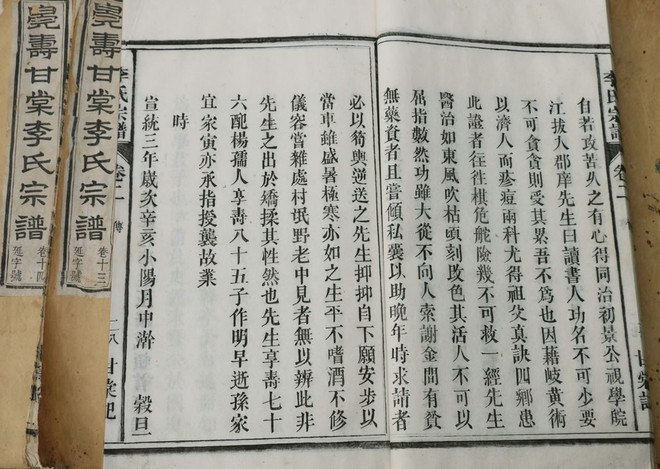 李氏宗譜 卷二
自若攻苦久之有心得同治初景公視學院
江拔人郡庠先生曰讀書人功名不可少要
不可貪貪則受其累吾不為也因藉岐黃術
以濟人而疹痘兩科尤得祖父真訣四鄉患
此證者往往棋危舵險幾不可救一經先生
醫治如東風吹枯頃刻改色其活人不可以
屈指數然功雖大從不向人索謝金間有貧
無藥資者且嘗傾私囊以助晚年時求請者
必以筍輿逆送之先生抑抑自下願安步以
當車雖盛暑極寒亦如之生平不嗜酒不修
儀容嘗雜處村氓野老中見者無以辨此非
先生之出於矯揉其性然也先生享壽七十
六配楊孺人享壽八十五子作明早逝孫家
宜家寅亦承指授襲故業
時
宣統三年歲次辛亥小陽月中澣 穀旦
李氏宗譜 卷二 傳 二八 甘棠記
壽甘棠李氏宗譜
卷十三
延字號
壽甘棠李氏宗譜
卷十四
延字號